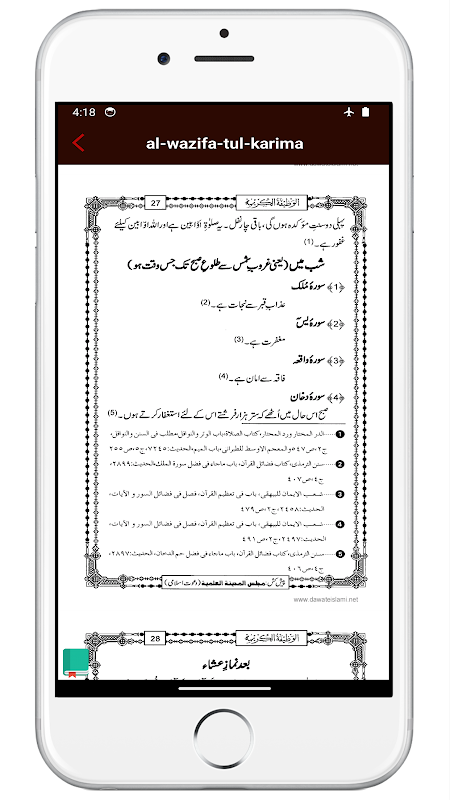 4:18
al-wazifa-tul-karima
www.dawateislami.net
الوظیفۃ الکریمۃ 27
پہلی دو سنتِ مؤکدہ ہوں گی، باقی چار نفل۔ یہ صلوٰۃِ اَوّابین ہے اور اللہ اوّابین کیلئے
غفور ہے۔(1)
شب میں (یعنی غروبِ شمس سے طلوعِ صبح تک جس وقت ہو)
﴿1﴾ سورۂ مُلک
عذابِ قبر سے نجات ہے۔(2)
﴿2﴾ سورۂ یٰسٓ
مغفرت ہے۔(3)
﴿3﴾ سورۂ واقعہ
فاقہ سے امان ہے۔(4)
﴿4﴾ سورۂ دخان
صبح اس حال میں اُٹھے کہ ستر ہزار فرشتے اس کے لئے استغفار کرتے ہوں۔(5)
1 ......الدر المختار ورد المحتار، کتاب الصلاۃ، باب الوتر والنوافل، مطلب فی السنن والنوافل،
ج۲، ص۵٤۷ والمعجم الاوسط للطبرانی، باب المیم، الحدیث:۷۲٤۵، ج۵، ص۲۵۵
2 ......سنن الترمذی، کتاب فضائل القرآن، باب ماجاء فی فضل سورۃ الملک، الحدیث:۲۸۹۹،
ج٤، ص٤۰۷
3 ......شعب الایمان للبیہقی، باب فی تعظیم القرآن، فصل فی فضائل السور و الآیات،
الحدیث:۲٤۵۸، ج۲، ص٤۷۹
4 ......شعب الایمان للبیہقی، باب فی تعظیم القرآن، فصل فی فضائل السور و الآیات،
الحدیث:۲٤۹۷، ج۲، ص٤۹۱
5 ......سنن الترمذی، کتاب فضائل القرآن، باب ماجاء فی فضل حم الدخان، الحدیث:۲۸۹۷،
ج٤، ص٤۰٦
پیش کش: مجلس المدینۃ العلمیۃ (دعوتِ اسلامی)
www.dawateislami.net
الوظیفۃ الکریمۃ 28
بعد نمازِ عشاء